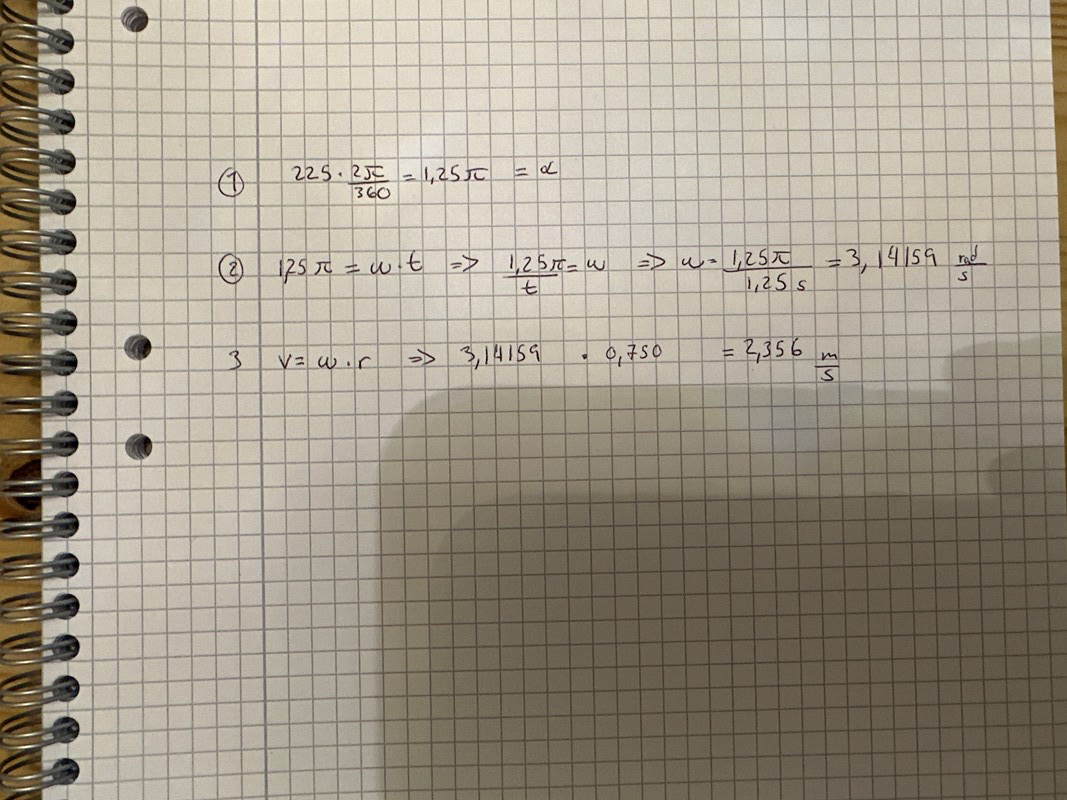 ① 225 · 2π/360 = 1,25π = α
② 1,25 π = ω · t => 1,25π/t = ω => ω = 1,25π/1,25 s = 3,14159 rad/s
3 v = ω · r => 3,14159 · 0,750 = 2,356 m/s